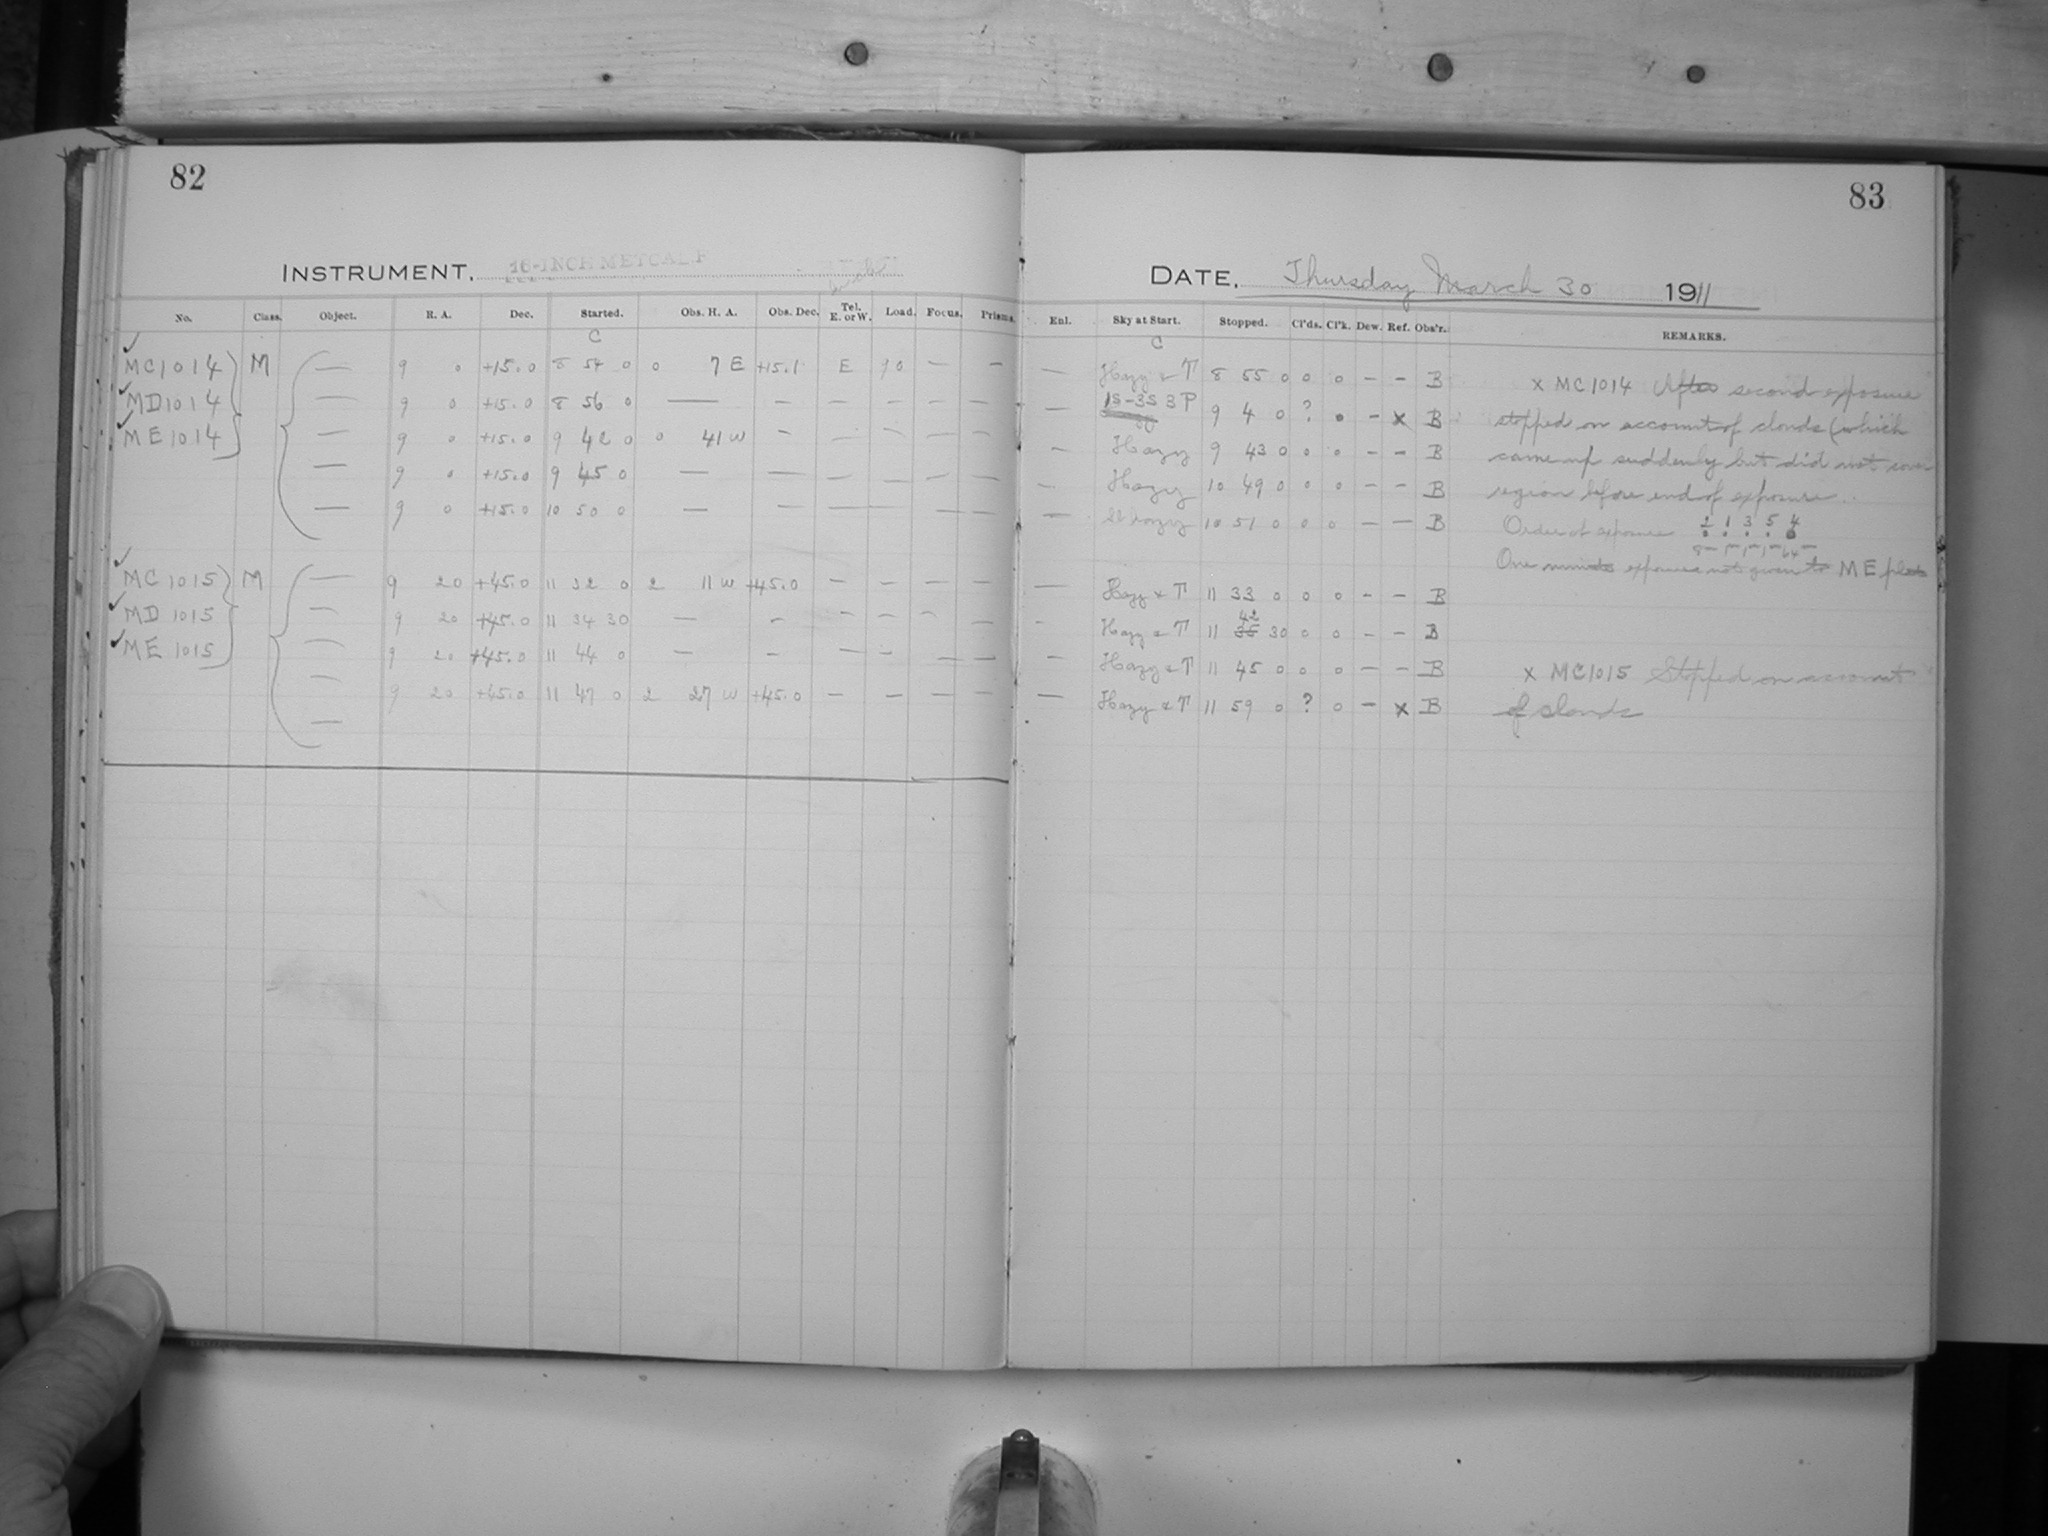 82
83
INSTRUMENT. 16-INCH METCALF
DATE. Thursday March 30 1911
No. Class. Object. R. A. Dec. Started. Obs. H. A. Obs. Dec. Tel. E. or W. Load. Focus. Prisms. Enl. Sky at Start. Stopped. Cl'ds. Cl'k. Dew. Ref. Obs'r. REMARKS.
C C
MC1014 M — 9 0 +15.0 8 54 0 0 7 E +15.1 E 90 — — — Hazy & T 8 55 0 0 0 — — B x MC1014 After second exposure
MD1014 — 9 0 +15.0 8 56 0 — — — — — — — — 1S-3S 3P 9 4 0 ? 0 — x B stopped on account of clouds (which
ME1014 — 9 0 +15.0 9 42 0 0 41 W — — — — — — Hazy 9 43 0 0 0 — — B came up suddenly but did not cover
— 9 0 +15.0 9 45 0 — — — — — — — Hazy 10 49 0 0 0 — — B region before end of exposure.
— 9 0 +15.0 10 50 0 — — — — — — — hazy 10 51 0 0 0 — — B Order of exposure 2 1 3 5 4
One minute exposures not given to ME plate
MC1015 M — 9 20 +45.0 11 32 0 2 11 W +45.0 — — — — — Hazy & T 11 33 0 0 0 — — B
MD 1015 — 9 20 +45.0 11 34 30 — — — — — — Hazy & T 11 35 42 30 0 0 — — B
ME 1015 — 9 20 +45.0 11 44 0 — — — — — — — Hazy & T 11 45 0 0 0 — — B x MC1015 Stopped on account
— 9 20 +45.0 11 47 0 2 27 W +45.0 — — — — — Hazy & T 11 59 0 ? 0 — x B of clouds
—